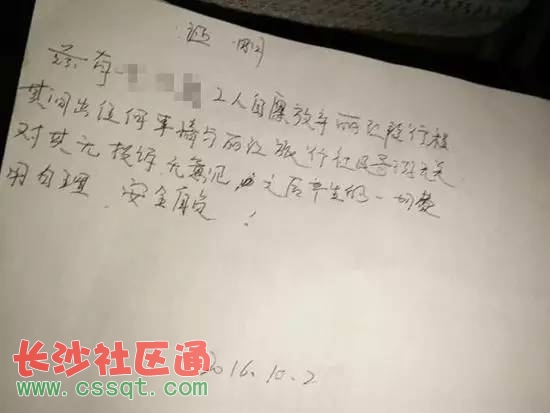 证明
兹有 2人自愿放弃丽江段行程
其间出任何事情与丽江旅行社及导游无关
对其无投诉无意见,之后产生的一切费
用自理,安全自负!
2016.10.2
长沙社区通
www.cssqt.com